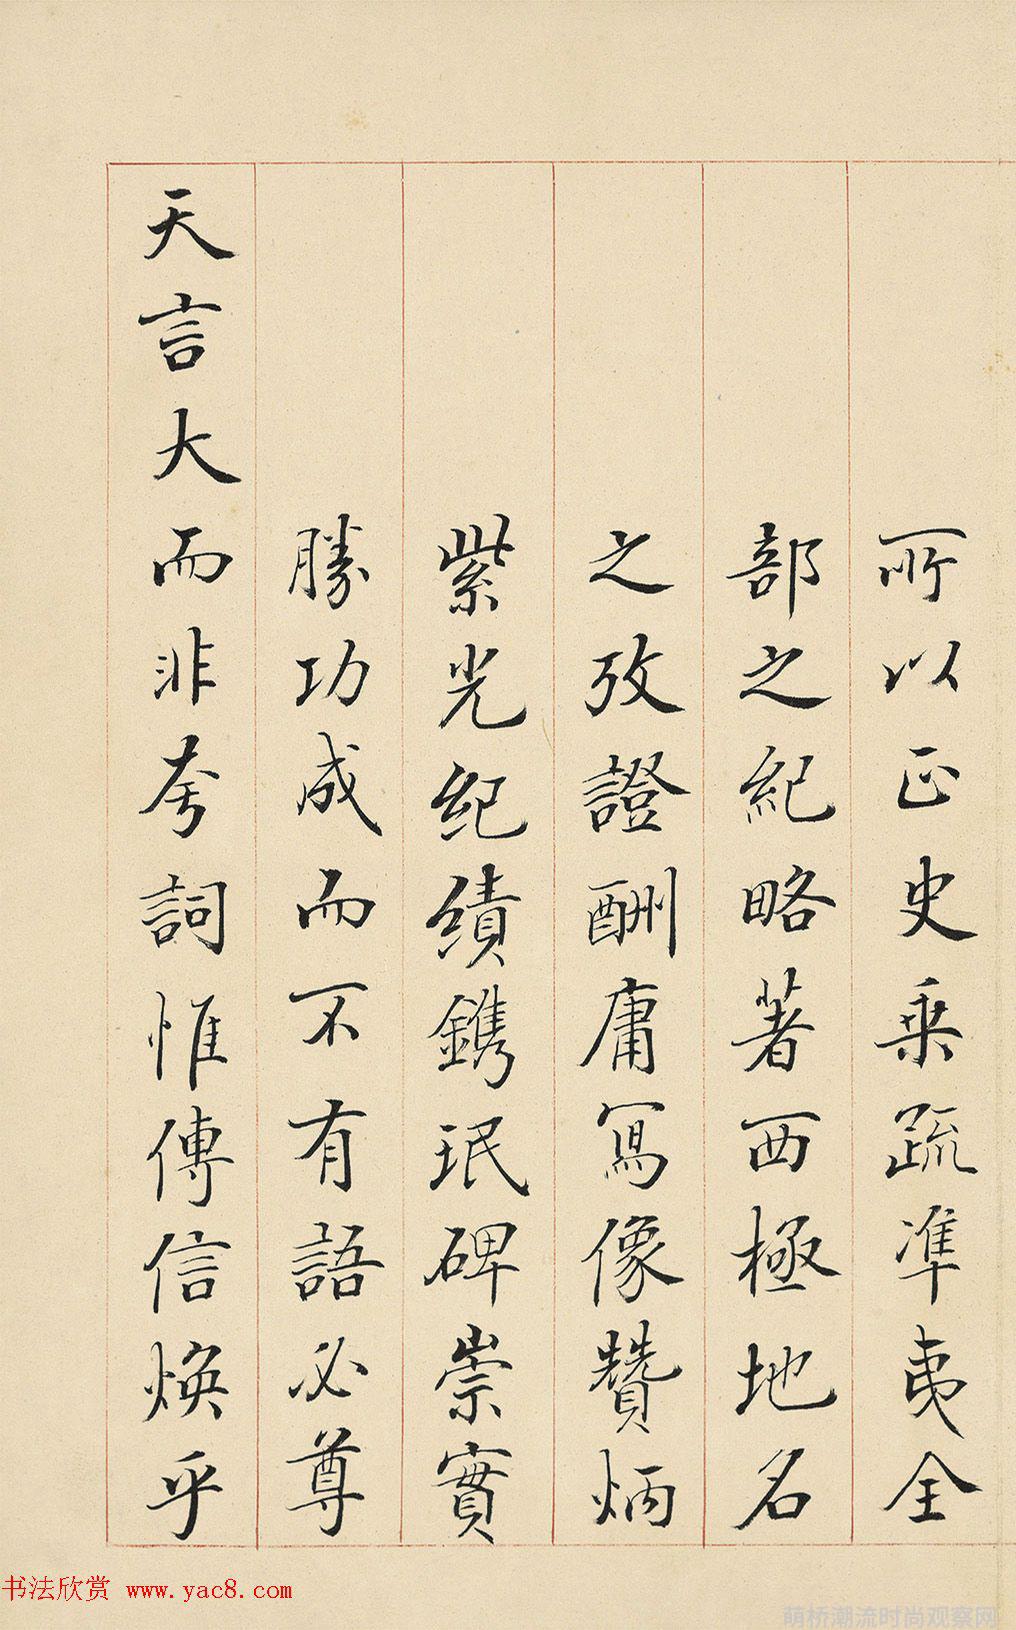 所以正史乘疏準夷全
部之紀略著西極地名
之攷證酬庸寫像贊炳
紫光紀績鐫珉碑崇實
勝功成而不有語必尊
天言大而非夸詞惟傳信煥乎
书法欣赏 www.yac8.com
萌桥潮流时尚观察网